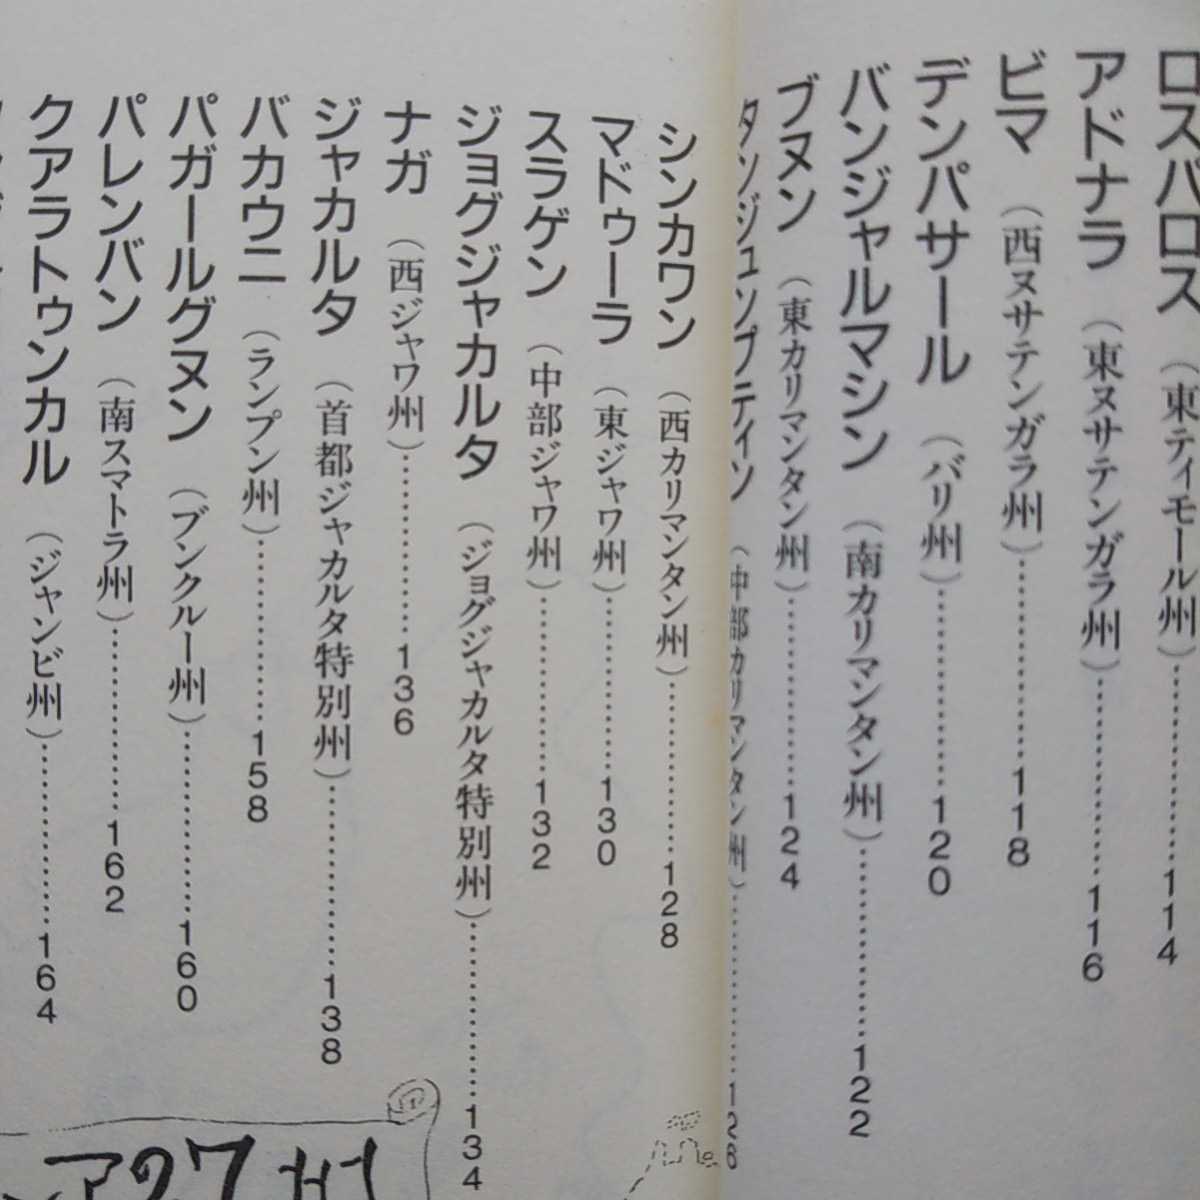 ロスパロス（東ティモール州）…………114
アドナラ（東ヌサテンガラ州）…………116
ビマ（西ヌサテンガラ州）…………118
デンパサール（バリ州）…………120
バンジャルマシン（南カリマンタン州）…………122
ブヌン（東カリマンタン州）…………124
タンジュンプティン（中部カリマンタン州）…………126
シンカワン（西カリマンタン州）…………128
マドゥーラ（東ジャワ州）…………130
スラゲン（中部ジャワ州）…………132
ジョグジャカルタ（ジョグジャカルタ特別州）…………134
ナガ（西ジャワ州）…………136
ジャカルタ（首都ジャカルタ特別州）…………138
バカウニ（ランプン州）…………158
パガールグヌン（ブンクルー州）…………160
パレンバン（南スマトラ州）…………162
クアラトゥンカル（ジャンビ州）…………164
ア27州